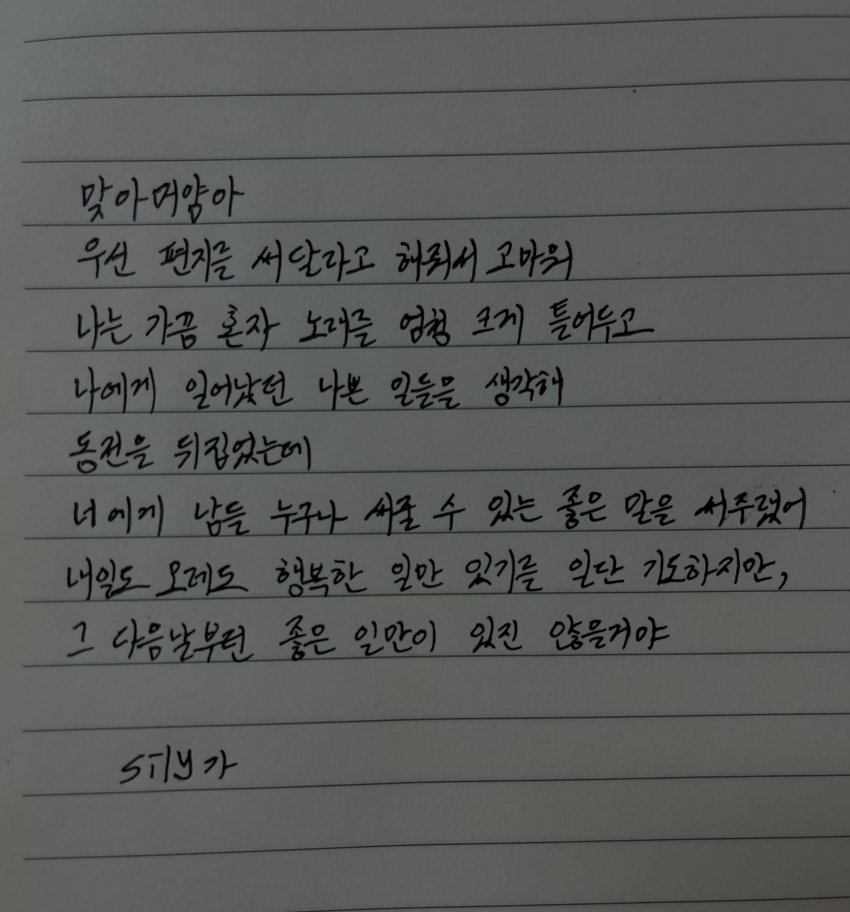 맞아머얌아
우선 편지를 써달라고 해줘서 고마워
나는 가끔 혼자 노래를 엄청 크게 틀어두고
나에게 일어났던 나쁜 일들을 생각해
동전을 뒤집었는데
너에게 남들 누구나 써줄 수 있는 좋은 말을 써주렸어
내일도 모레도 행복한 일만 있기를 일단 기도하지만,
그 다음날부턴 좋은 일만이 있진 않을거야
가